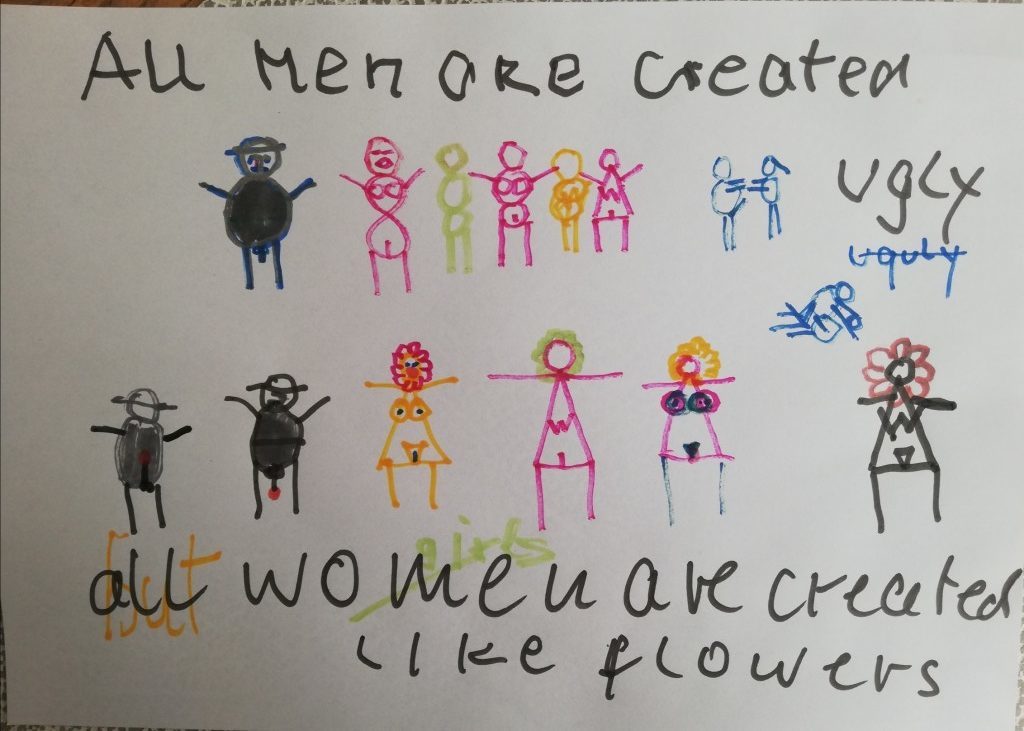 All Men are created
ugly
uguly
girls
but
all women are created
like flowers